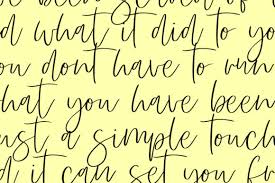 d what it did to yo
ou dont have to run
hat you have been
ust a simple touch
d it can set you f